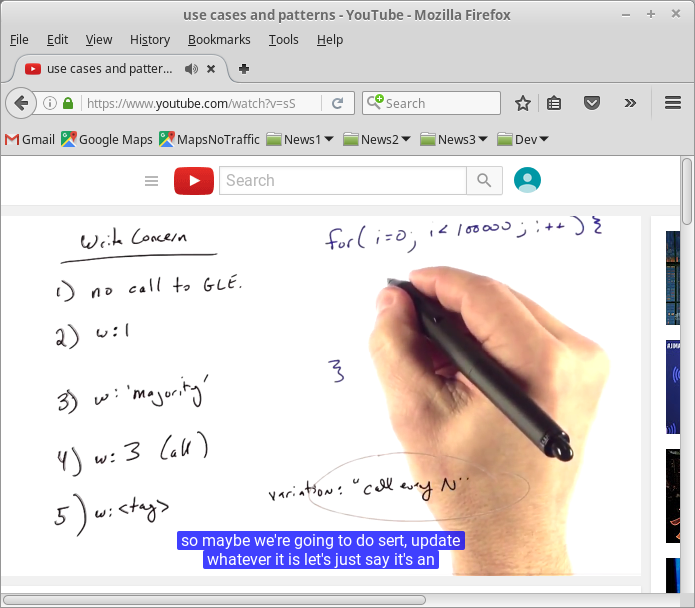 use cases and patterns - YouTube - Mozilla Firefox
File Edit View History Bookmarks Tools Help
use cases and patter...
https://www.youtube.com/watch?v=sS
Search
Gmail Google Maps MapsNoTraffic News1 News2 News3 Dev
Search
Write Concern
1) no call to GLE.
2) w:1
3) w:'majority'
4) w: 3 (all)
5) w:<tag>
for( i=0; i<100000; i++ ) {
}
variation: "call every N"
so maybe we're going to do sert, update
whatever it is let's just say it's an